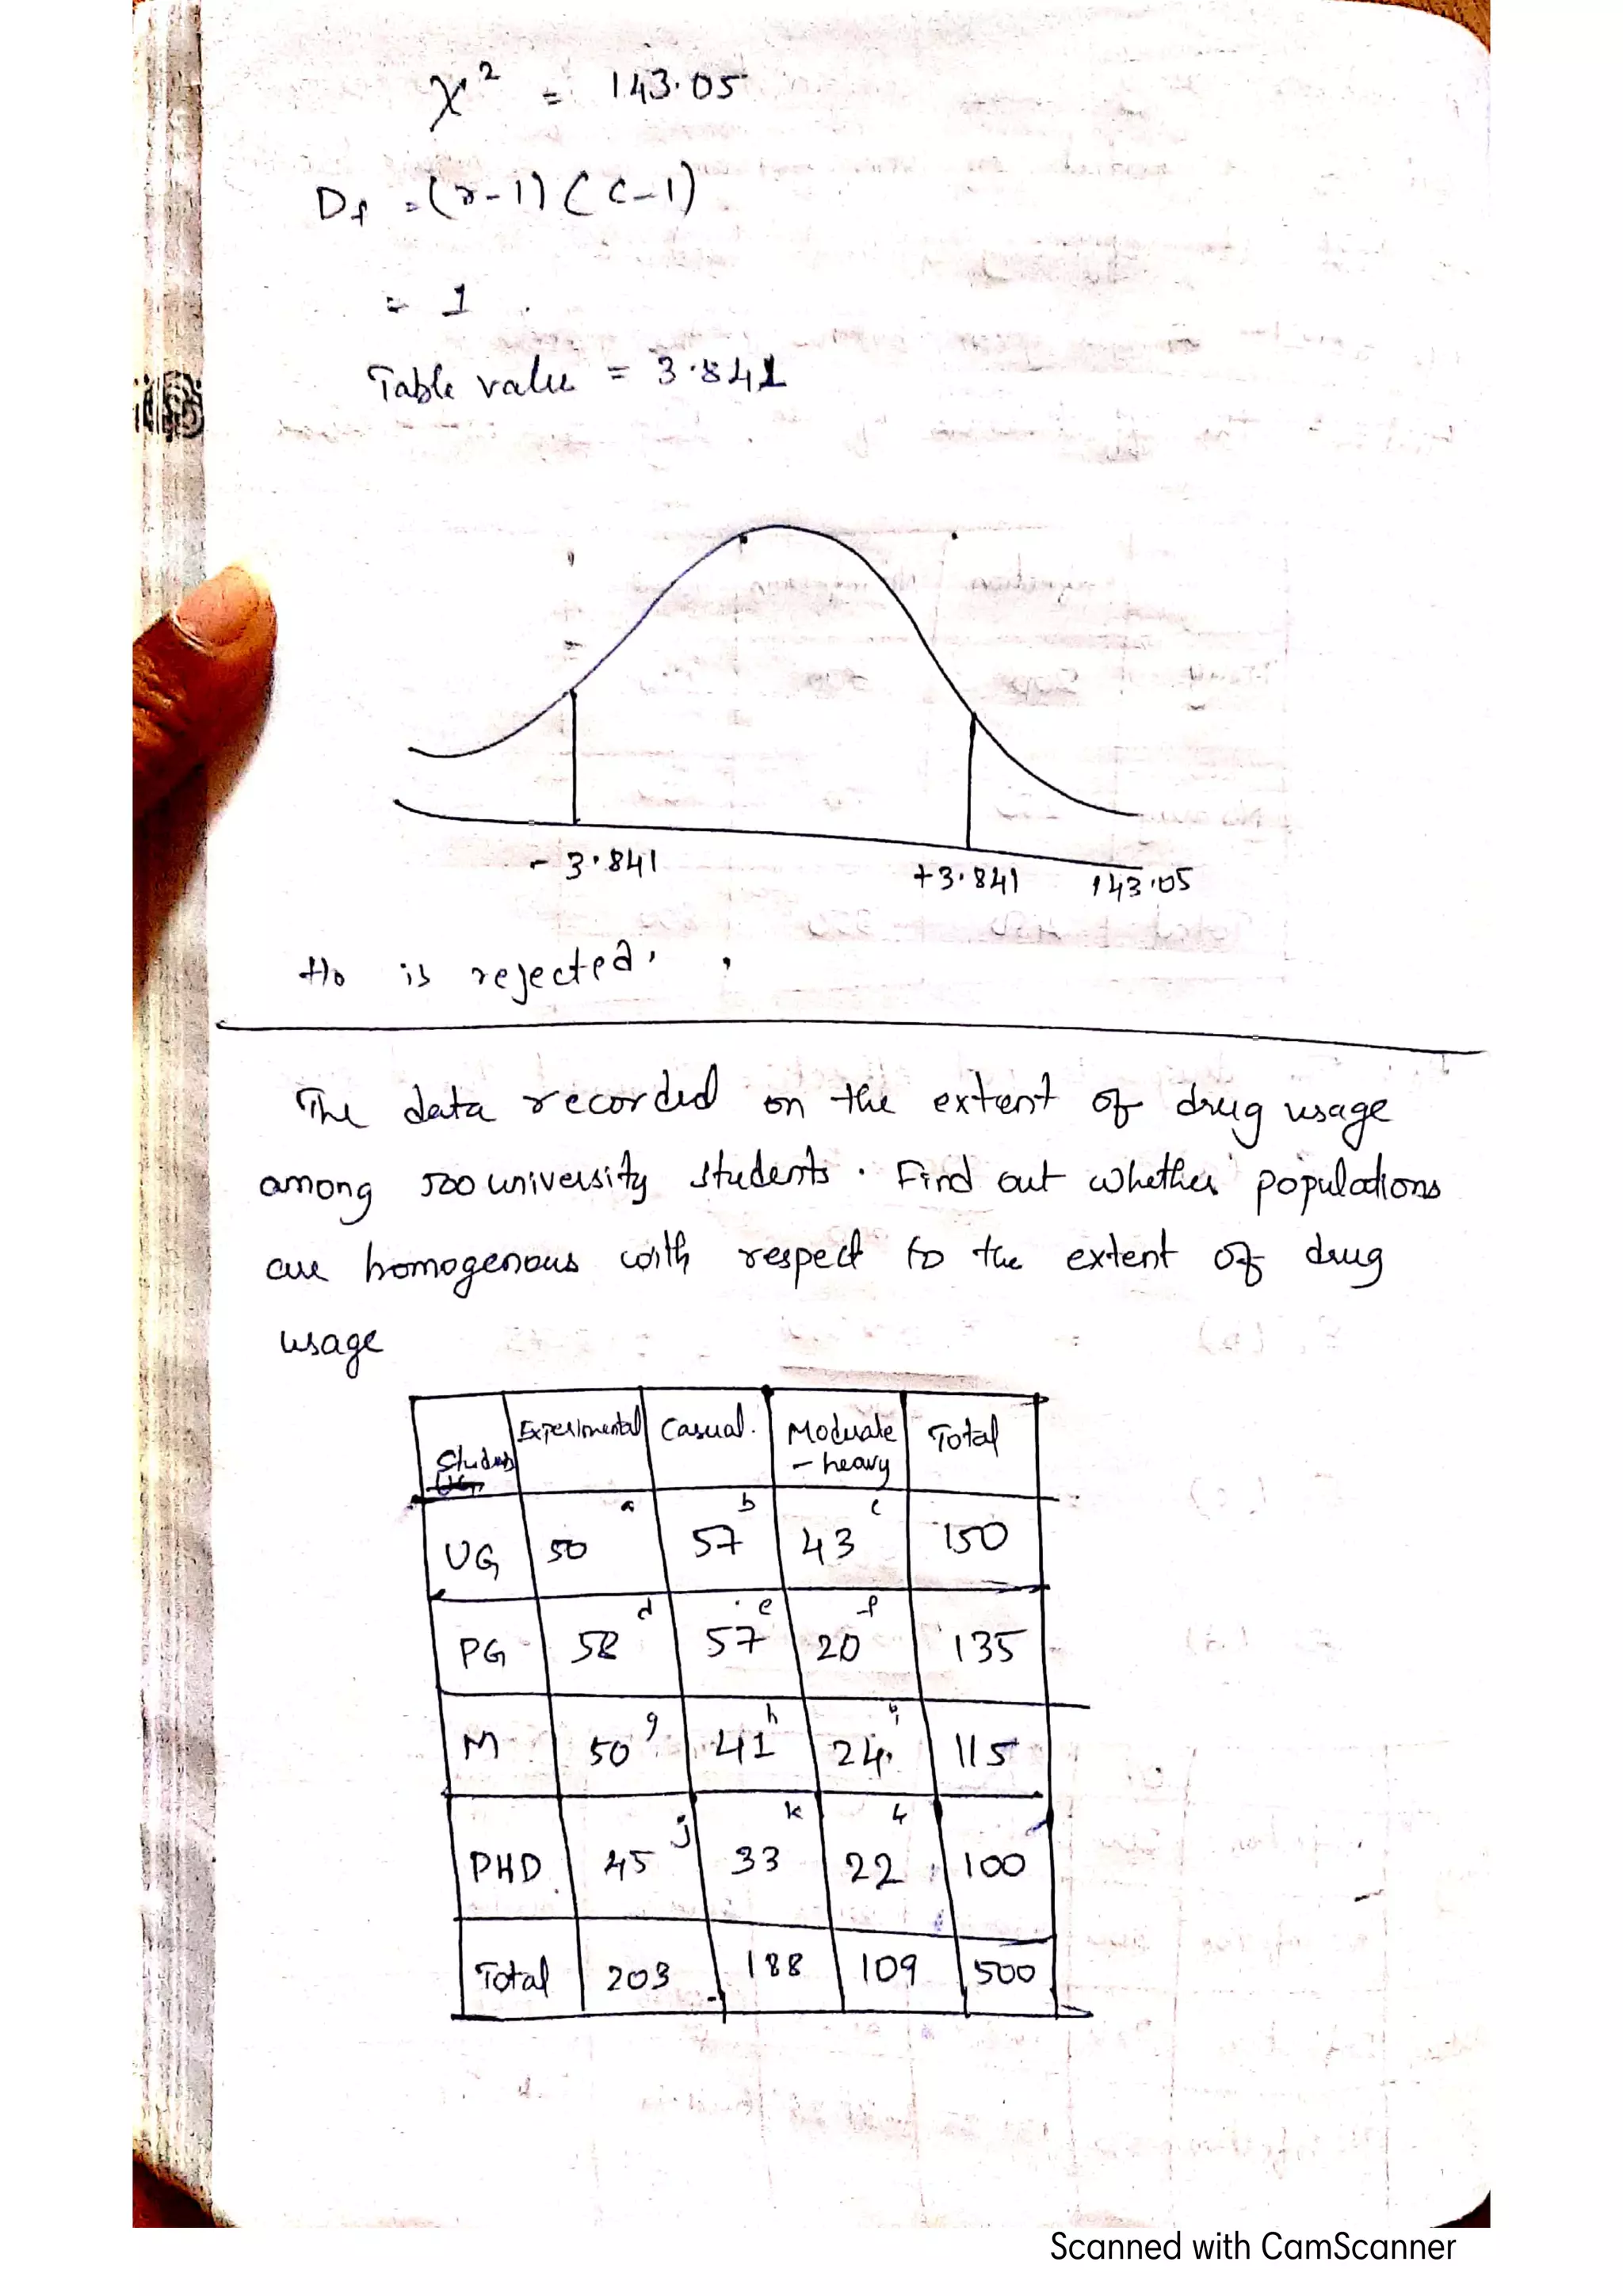 χ² = 143.05
Df = (r-1) (c-1)
= 1
Table value = 3.841
- 3.841 +3.841 143.05
H0 is rejected.
The data recorded on the extent of drug usage
among 500 university students. Find out whether populations
are homogenous with respect to the extent of drug
usage
Students Experimental Casual. Moderate - heavy Total
UG 50 a 57 b 43 c 150
PG 58 d 57 e 20 f 135
M 50 g 41 h 24 i 115
PHD 45 j 33 k 22 100
Total 203 188 109 500
Scanned with CamScanner